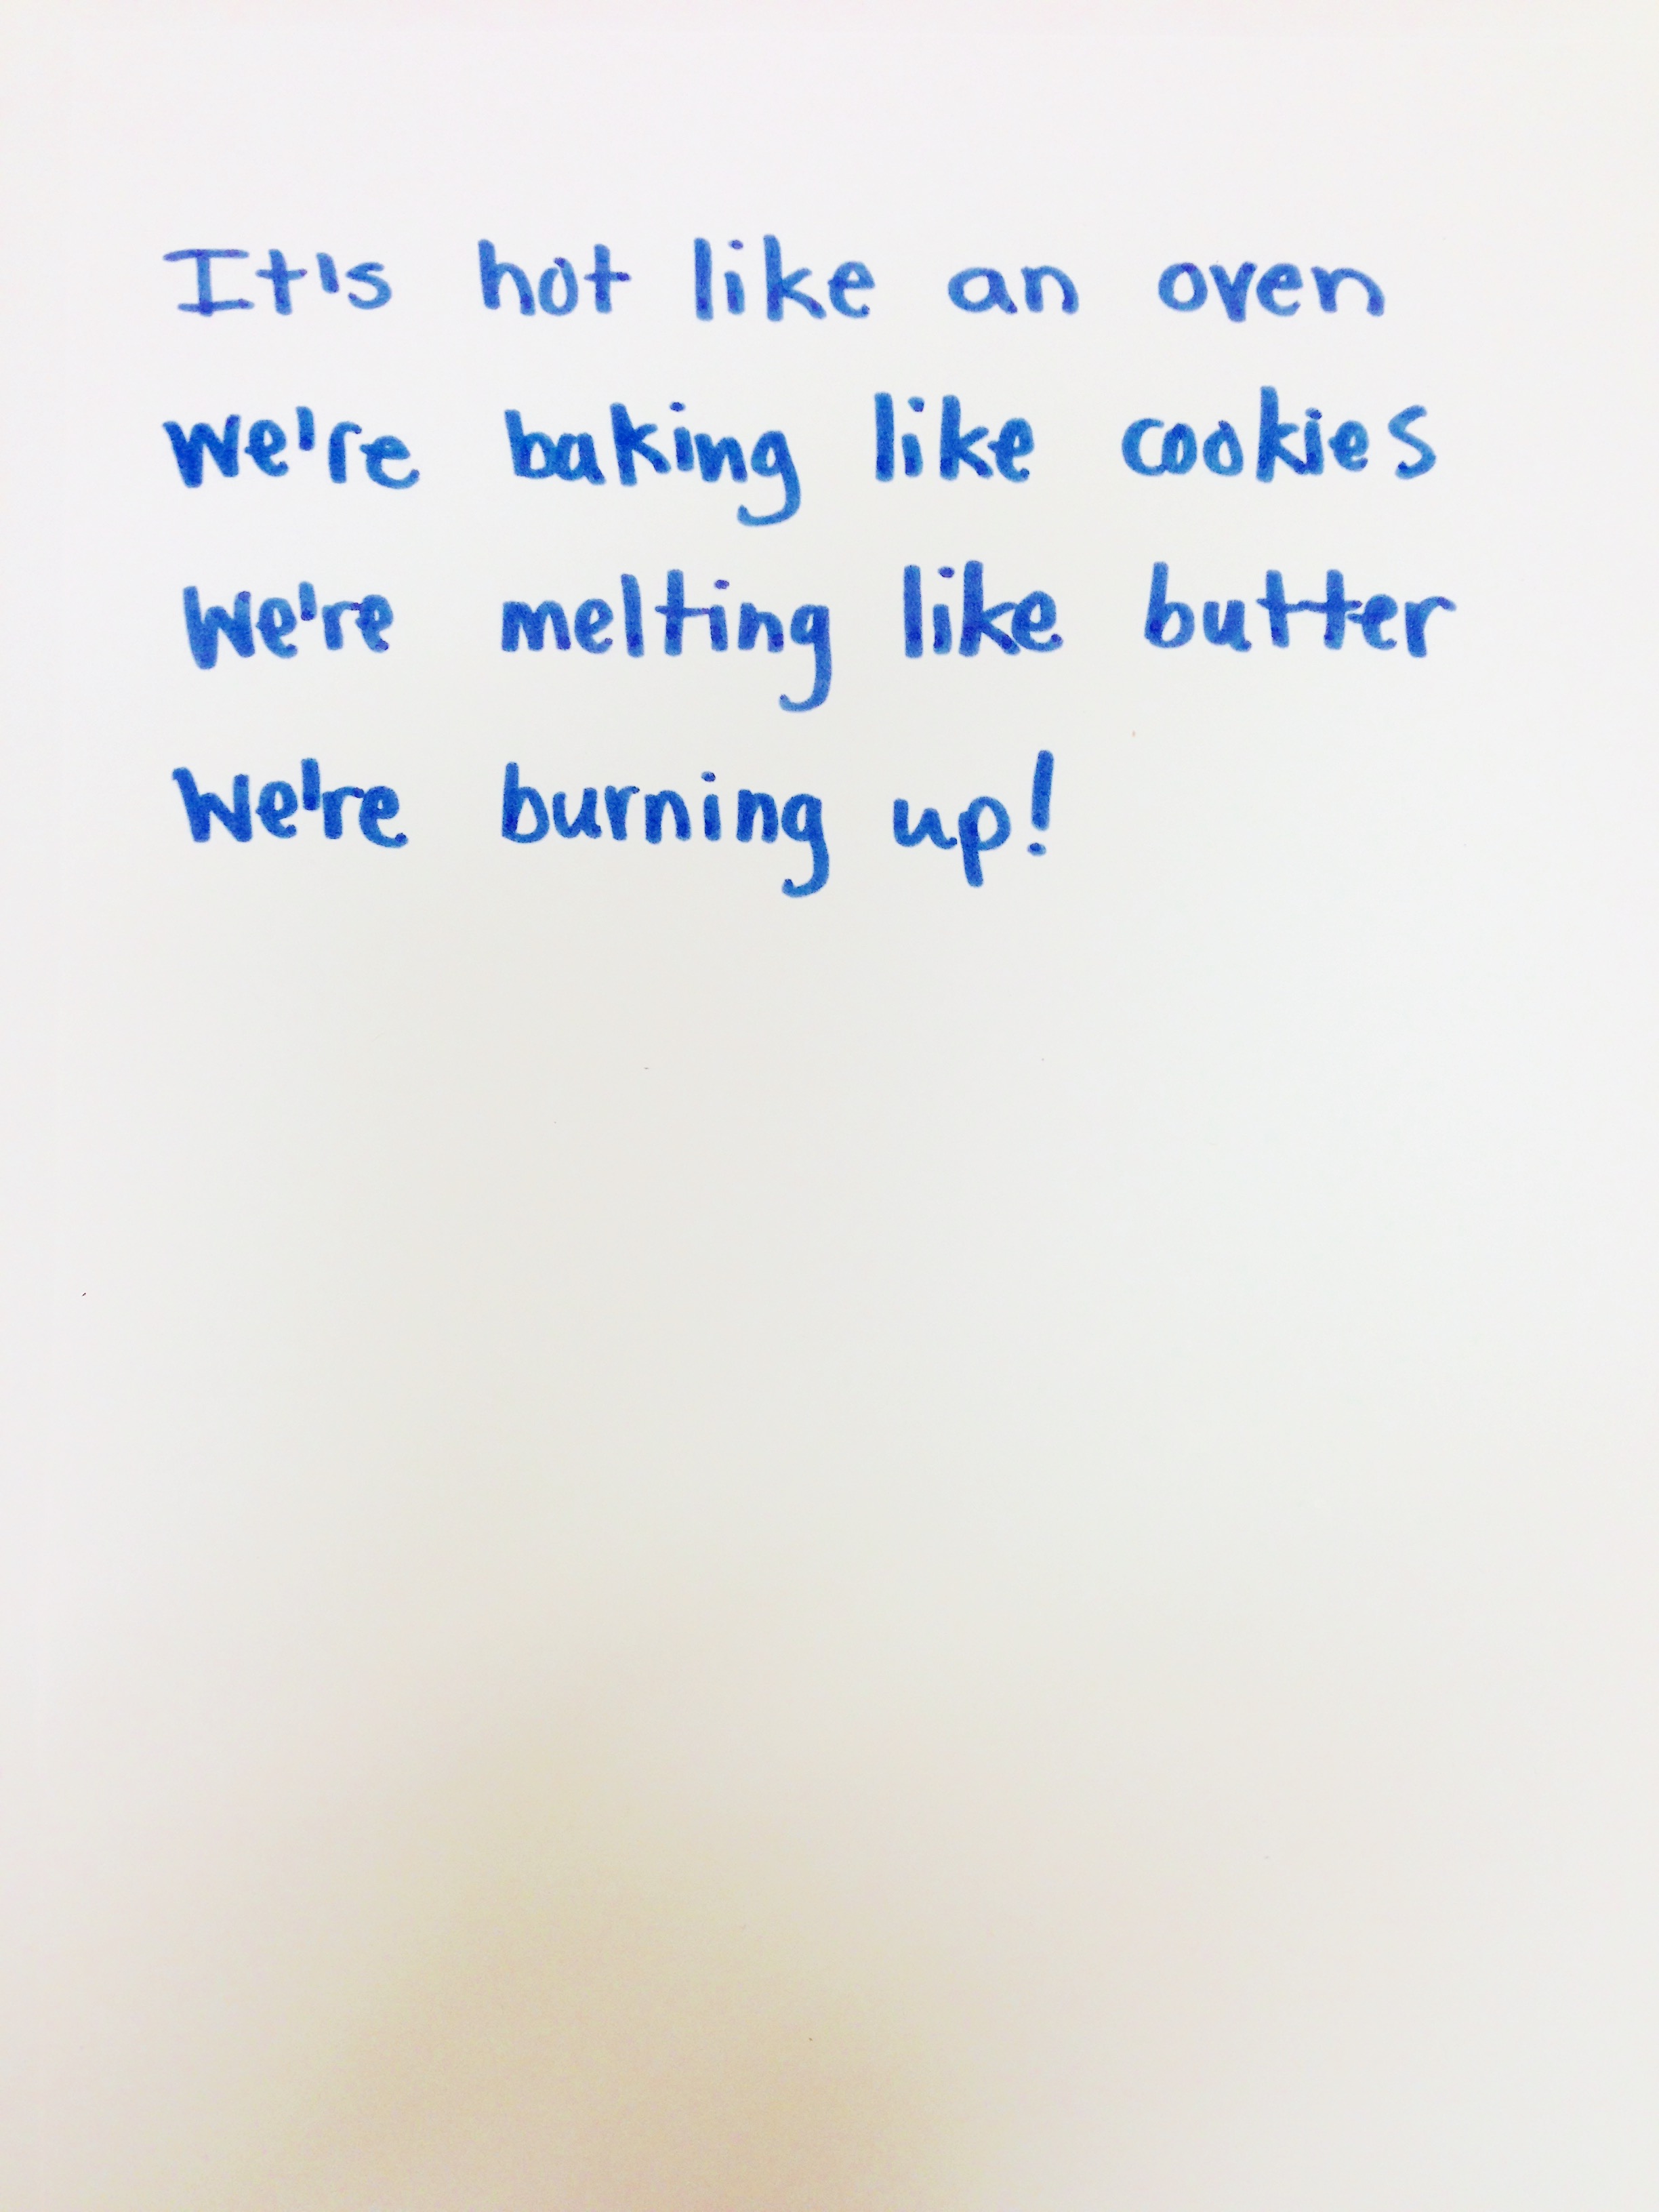 It's hot like an oven
We're baking like cookies
We're melting like butter
We're burning up!